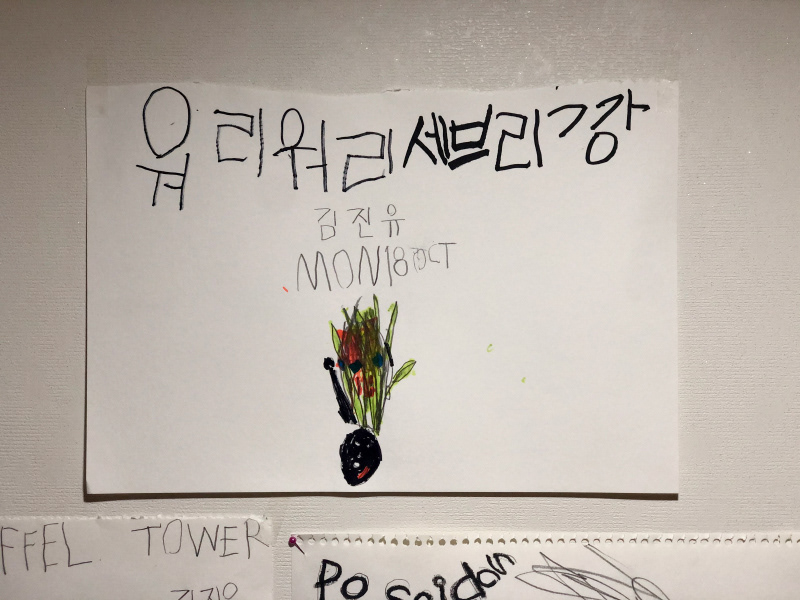 워리워리세브리깡
김진유
MON18OCT
FFEL TOWER
Poseidon